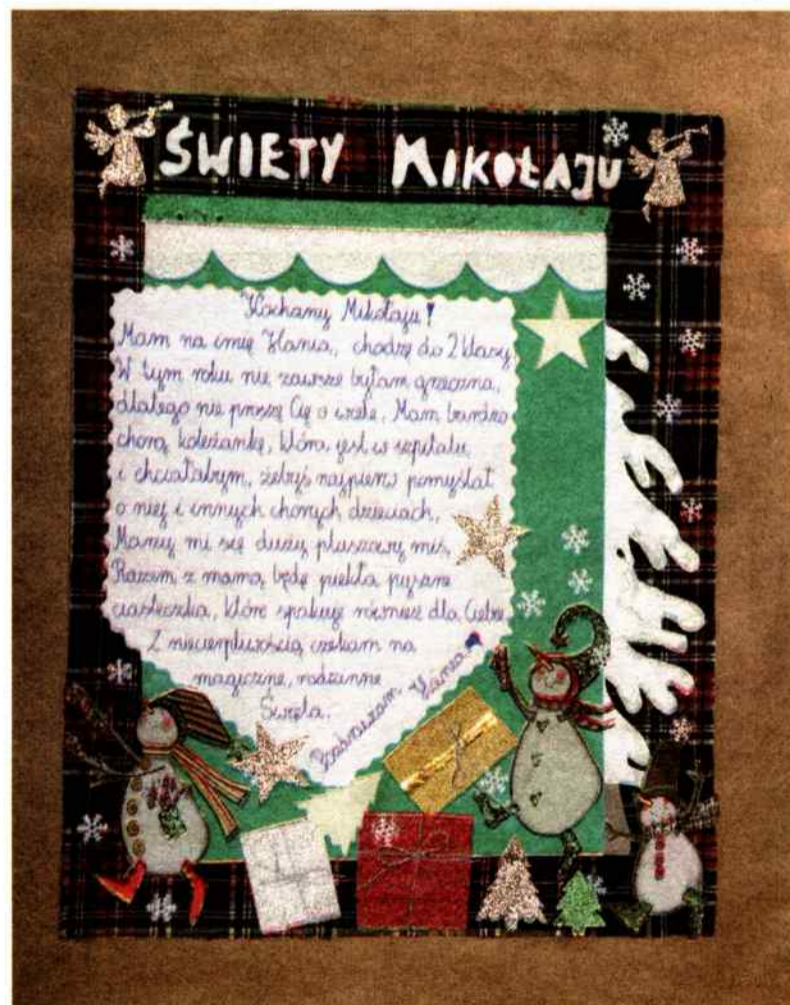 ŚWIĘTY MIKOŁAJU
Kochany Mikołaju!
Mam na imię Hania, chodzę do 2 klasy.
W tym roku nie zawsze byłam grzeczna,
dlatego nie proszę Cię o wiele. Mam bardzo
chorą koleżankę, która jest w szpitalu
i chciałabym, żebyś najpierw pomyślał
o niej i innych chorych dzieciach.
Marzy mi się duży pluszowy miś.
Razem z mamą będę piekła pyszne
ciasteczka, które spakuję również dla Ciebie.
Z niecierpliwością czekam na
magiczne, rodzinne
Święta.
Pozdrawiam Hania